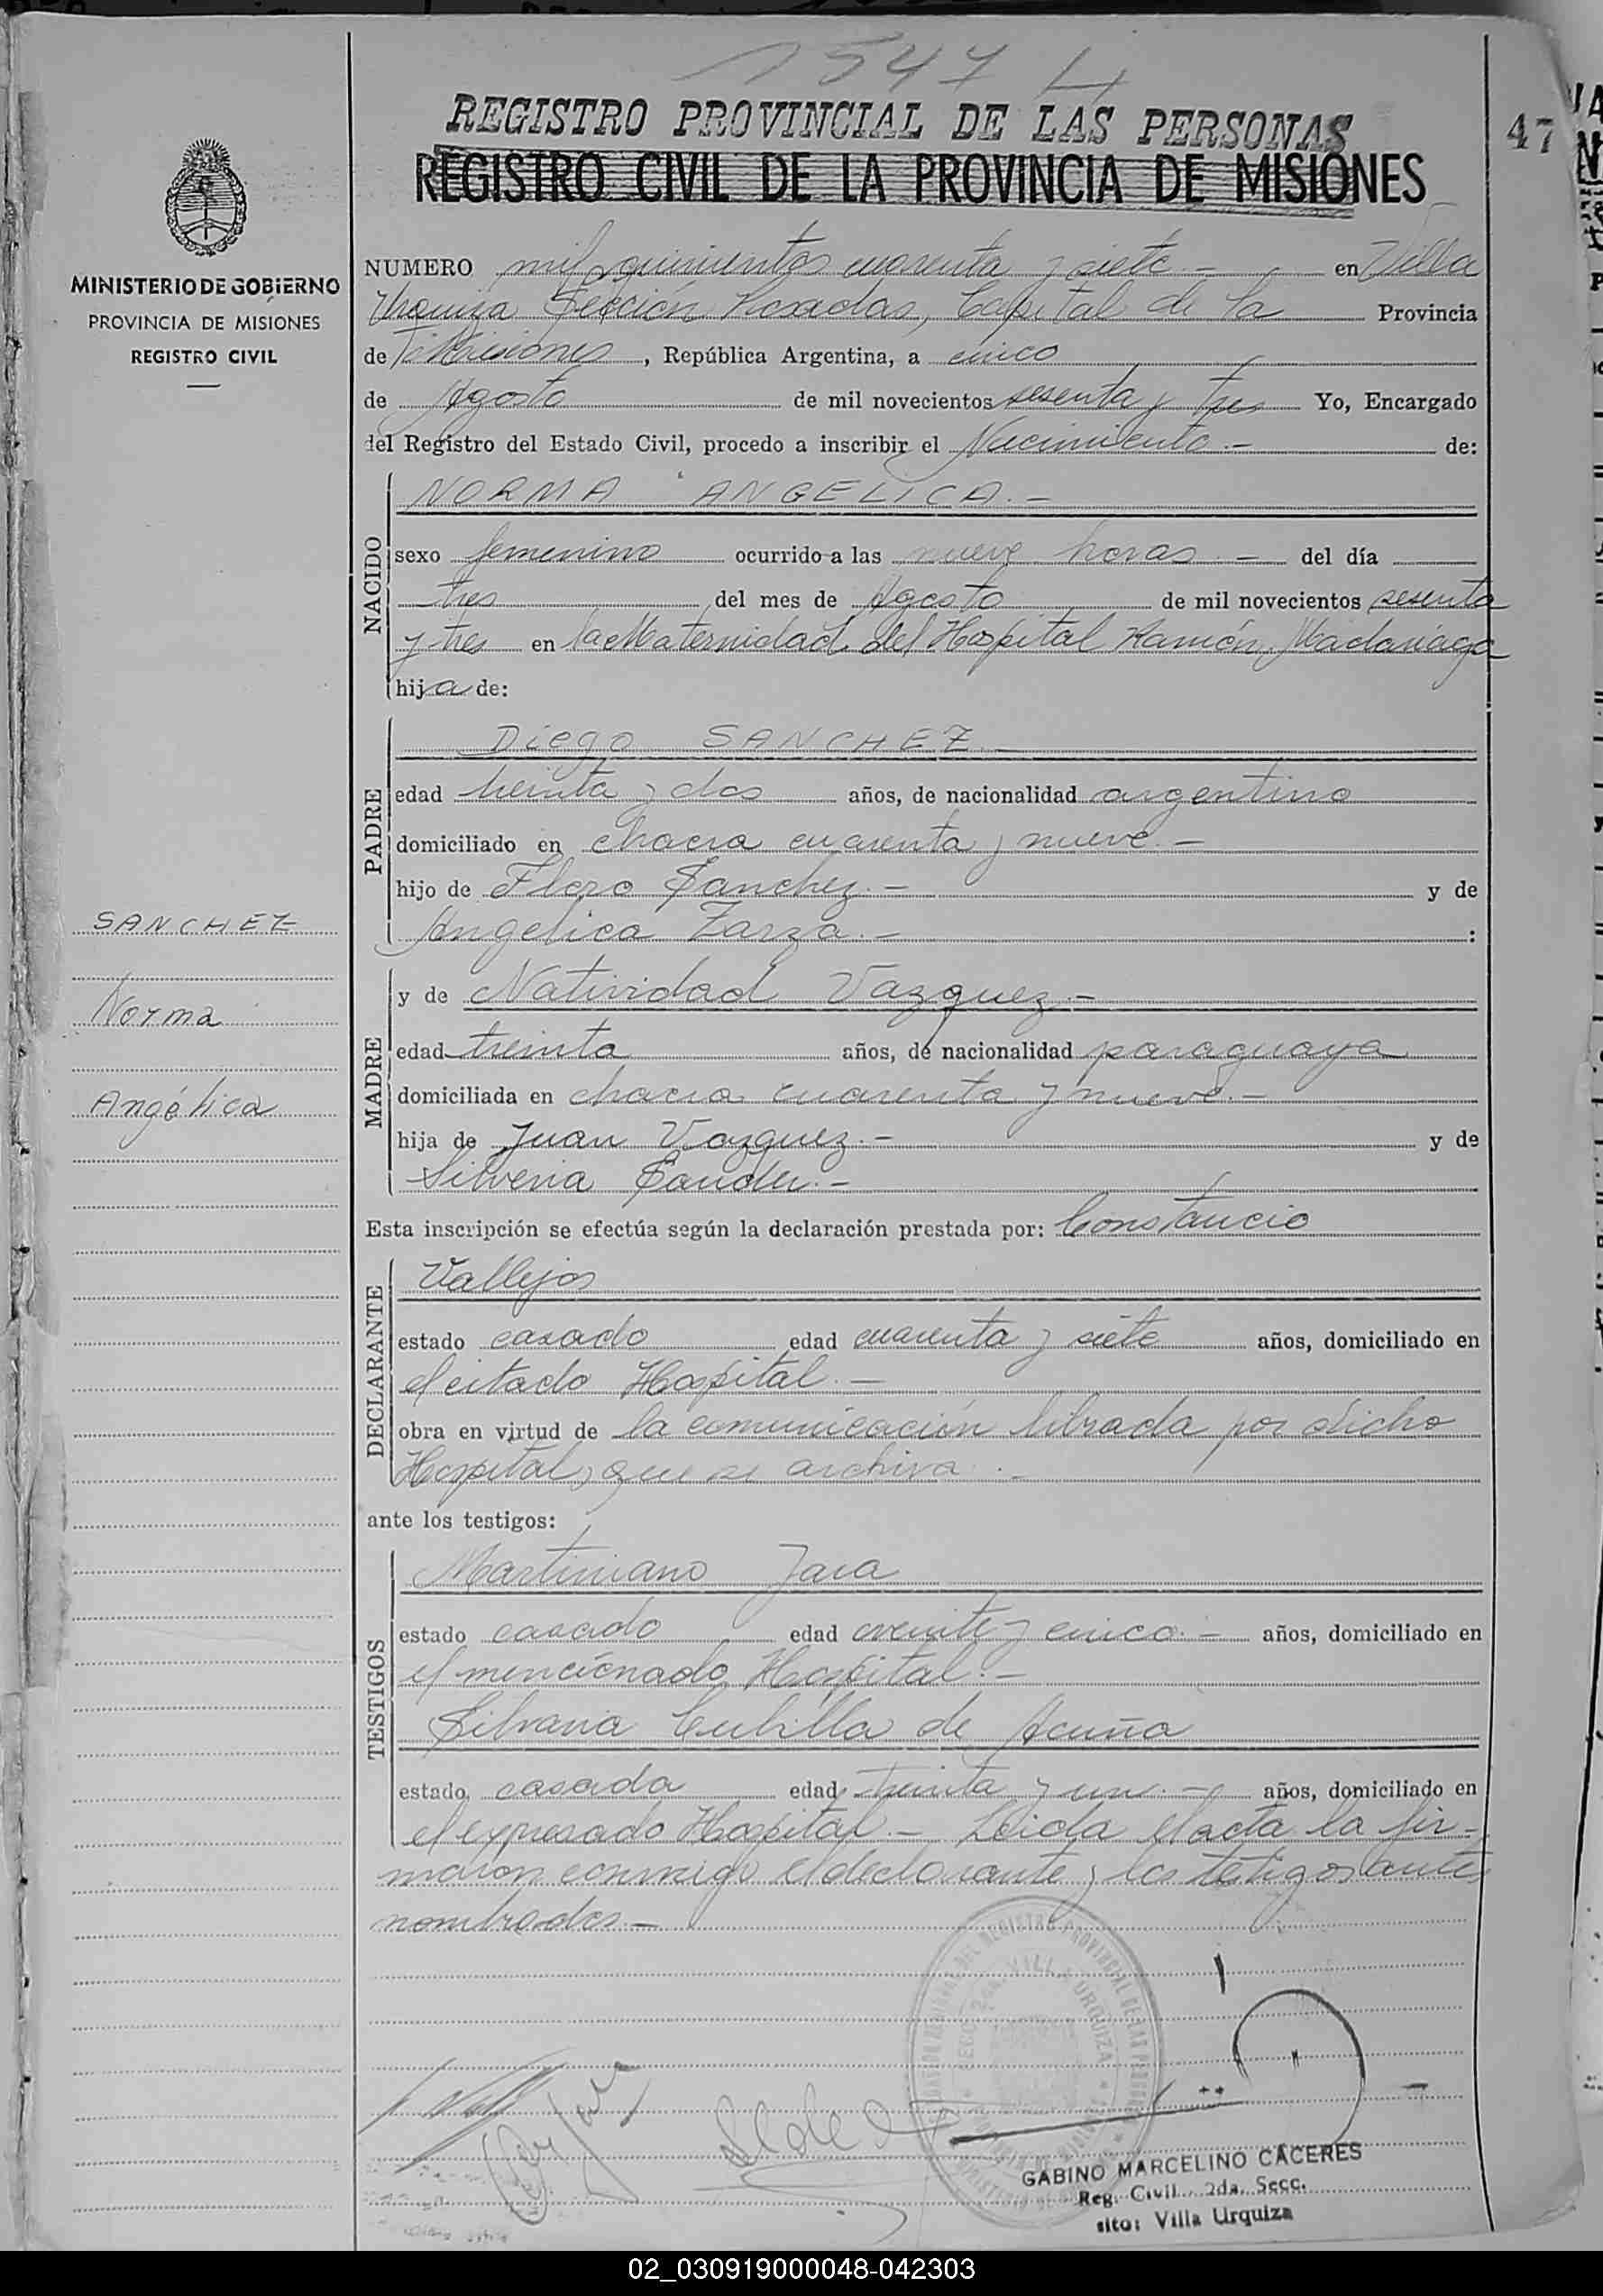 1547 L
REGISTRO PROVINCIAL DE LAS PERSONAS
47
REGISTRO CIVIL DE LA PROVINCIA DE MISIONES
MINISTERIO DE GOBIERNO
PROVINCIA DE MISIONES
REGISTRO CIVIL
NUMERO mil quinientos cuarenta y siete.- en Villa
Urquiza Sección Posadas, Capital de la Provincia
de Misiones, República Argentina, a cinco
de Agosto de mil novecientos sesenta y tres Yo, Encargado
del Registro del Estado Civil, procedo a inscribir el Nacimiento.- de:
NACIDO
NORMA ANGELICA.-
sexo femenino ocurrido a las nueve horas.- del día
tres del mes de Agosto de mil novecientos sesenta
y tres en la Maternidad del Hospital Ramón Madariaga
hija de:
PADRE
Diego SANCHEZ.-
edad treinta y dos años, de nacionalidad argentino
domiciliado en chacra cuarenta y nueve.-
hijo de Floro Sanchez.- y de
Angelica Zarza.- :
MADRE
y de Natividad Vazquez.-
edad treinta años, de nacionalidad paraguaya
domiciliada en chacra cuarenta y nueve.-
hija de Juan Vazquez.- y de
Silveria .-
SANCHEZ
Norma
Angélica
Esta inscripción se efectúa según la declaración prestada por: Constancio
DECLARANTE
Vallejos
estado casado edad cuarenta y siete años, domiciliado en
el citado Hospital.-
obra en virtud de la comunicación librada por dicho
Hospital, que se archiva.-
ante los testigos:
TESTIGOS
Martiniano Jara
estado casado edad y cinco.- años, domiciliado en
el mencionado Hospital.-
Silvana Cubilla de Acuña
estado casada edad treinta y un.- años, domiciliado en
el expresado Hospital.- Leida el acta la fir-
maron conmigo el declarante y los testigos antes
nombrados.-
GABINO MARCELINO CACERES
Reg. Civil 2da. Secc.
sito: Villa Urquiza
02_030919000048-042303